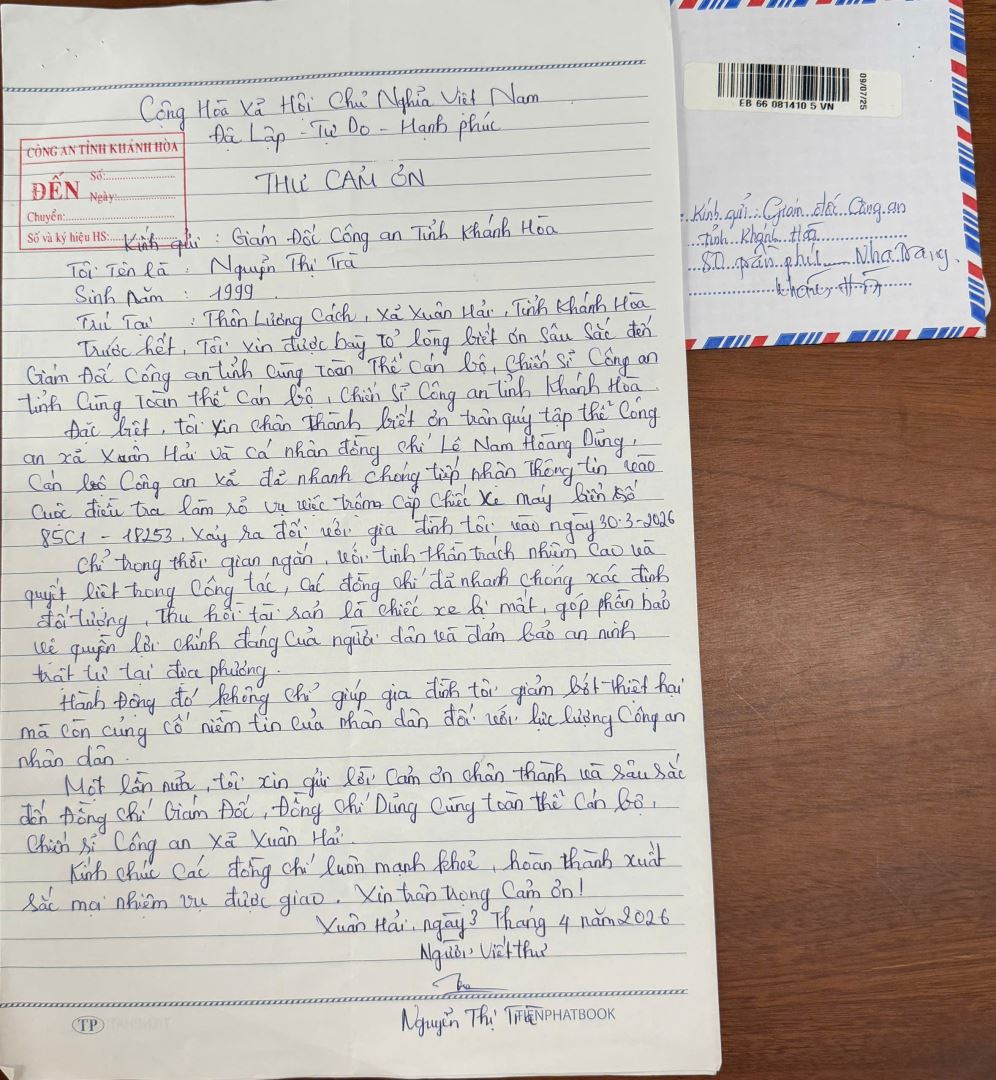 Cộng Hòa Xả Hội Chủ Nghĩa Việt Nam
Độ Lập - Tự Do - Hạnh phúc
CÔNG AN TỈNH KHÁNH HÒA
ĐẾN
Số:
Ngày:
Chuyển:
Số và ký hiệu HS:
THƯ CẢM ƠN
Kính gửi : Giám Đốc Công an Tỉnh Khánh Hòa
Tôi Tên là : Nguyễn Thị Trà
Sinh Năm : 1999
Trú Tại : Thôn Lương Cách, Xã Xuân Hải, Tỉnh Khánh Hòa
Trước hết, Tôi xin được bày Tỏ lòng biết ơn Sâu Sắc đến
Giám Đốc Công an tỉnh Cùng Toàn Thể Cán bộ, Chiến Sĩ Công an
tỉnh Cùng Toàn thể Cán bộ, Chiến Sĩ Công an tỉnh Khánh Hòa
Đặc biệt, tôi xin chân Thành biết ơn trân quý tập thể Công
an xã Xuân Hải và Cá nhân đồng chí Lê Nam Hoàng Dũng,
Cán bộ Công an Xã đã nhanh chóng tiếp nhận Thông tin vào
Cuộc điều tra làm rỏ vụ việc trộm Cắp Chiếc Xe máy biển số
85C1 - 18253. Xảy ra đối với gia đình tôi vào ngày 30-3-2026
Chỉ trong thời gian ngắn, với tinh thần trách nhiệm Cao và
quyết liệt trong Công tác, Các đồng chí đã nhanh chóng xác định
đối tượng, Thu hồi tài sản là chiếc xe bị mất, góp phần bảo
vệ quyền lợi chính đáng Của người dân và đảm bảo an ninh
trật tự tại địa phương.
Hành Động đó không chỉ giúp gia đình tôi giảm bớt thiệt hại
mà Còn củng cố niềm tin của nhân dân đối với lực lượng Công an
nhân dân.
Một lần nữa, tôi xin gửi lời Cảm ơn chân thành và sâu sắc
đến Đồng chí Giám Đốc, Đồng chí Dũng Cùng toàn thể Cán bộ,
Chiến sĩ Công an Xã Xuân Hải.
Kính chúc Các đồng chí luôn mạnh khoẻ, hoàn thành xuất
Sắc mọi nhiệm vụ được giao. Xin trân trọng Cảm ơn!
Xuân Hải, ngày 3 Tháng 4 năm 2026
Người Viết thư
Nguyễn Thị Trà
TIENPHATBOOK
TP
EB 66 081410 5 VN
09/07/25
Kính gửi : Giám đốc Công an
tỉnh Khánh Hòa
80 trần phú Nha Trang
Khánh Hòa